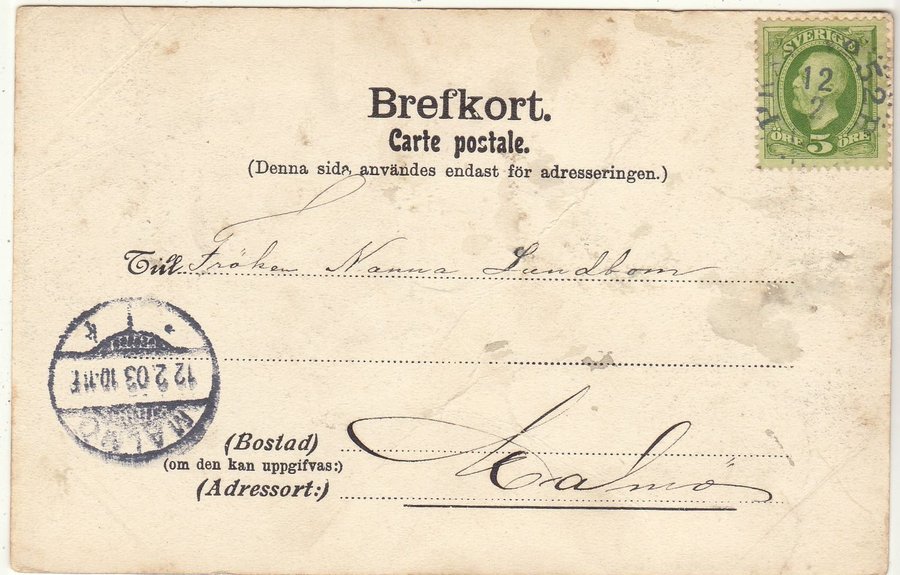 SVERIGE
12
2
ÖRE 5 ÖRE
Brefkort.
Carte postale.
(Denna sida användes endast för adresseringen.)
Till Fröken Nanna Lundbom
MALMÖ
12.2.03 10-11 F
(Bostad)
(om den kan uppgifvas:)
(Adressort:)
Malmö